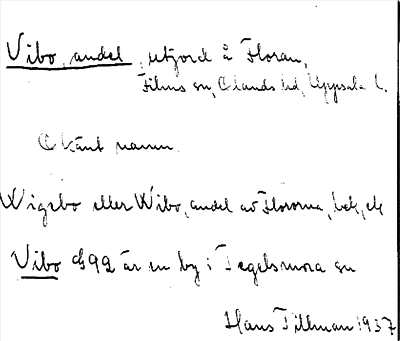 Vibo, andel, utjord å Floran,
Films sn, Olands hd, Uppsala l.
Okänt namn.
Wigsbo eller Wibo, andel av Flororna, bek, ek
Vibo G92 är en by i Tegelsmora sn
Hans Tillman 1937